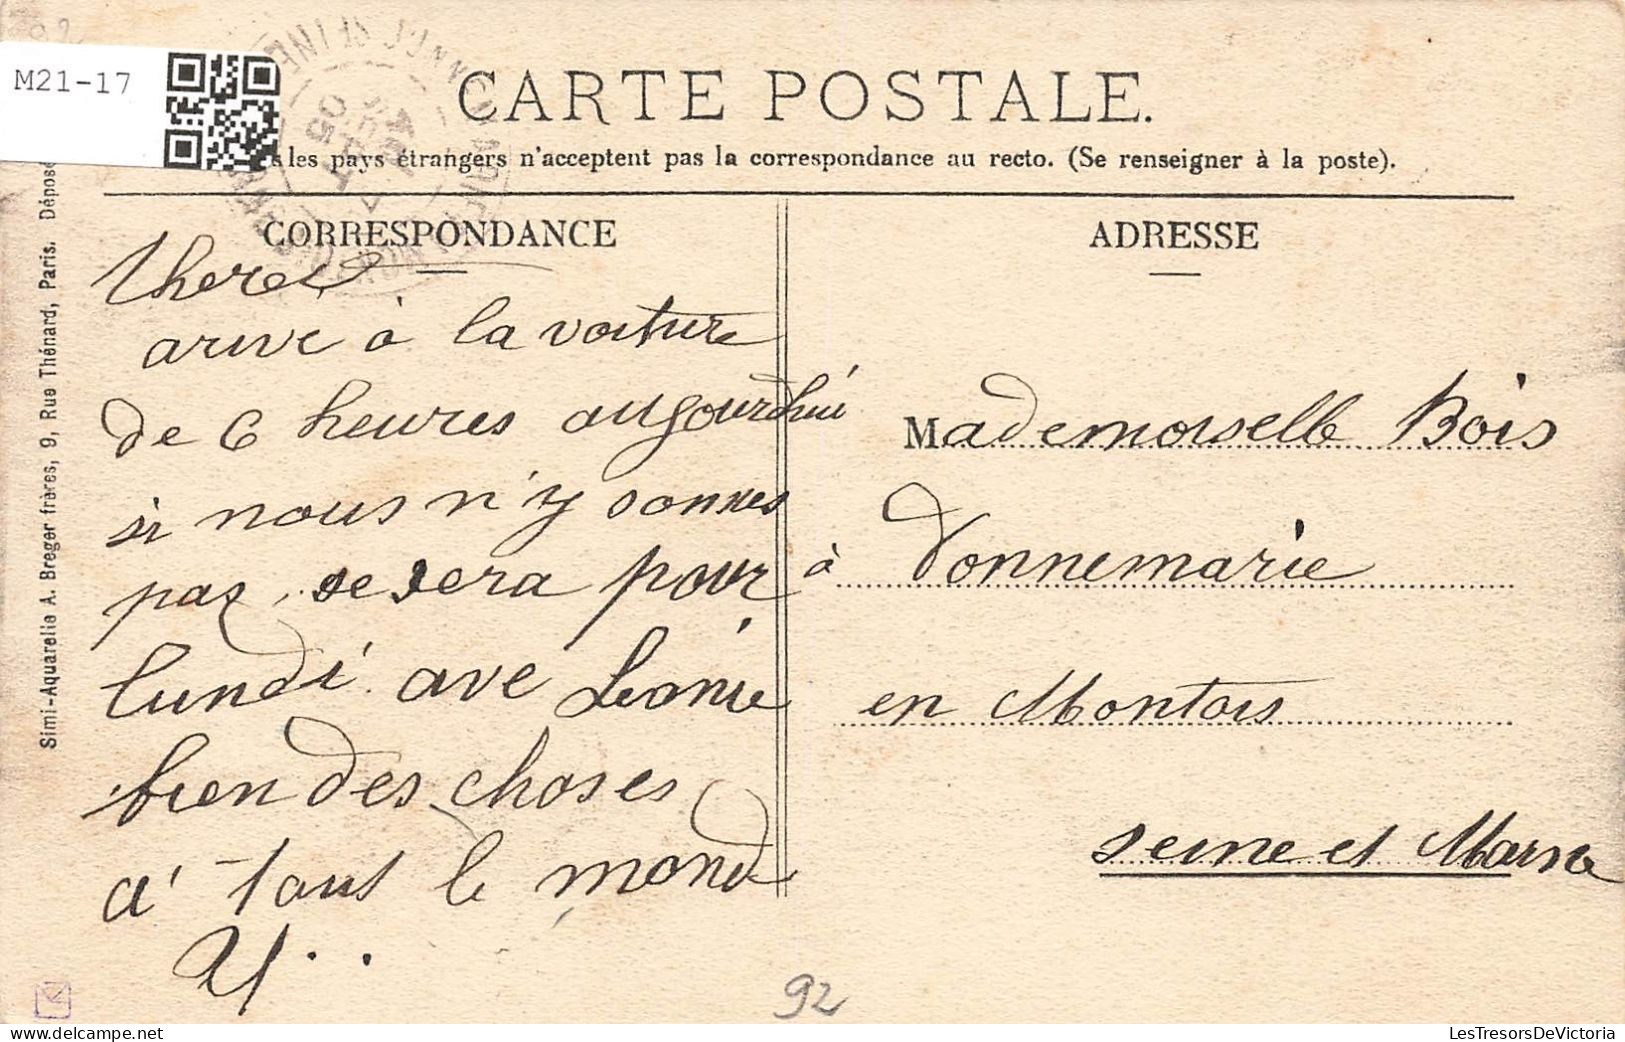 M21-17
CARTE POSTALE.
les pays étrangers n'acceptent pas la correspondance au recto. (Se renseigner à la poste).
CORRESPONDANCE
ADRESSE
arive à la voiture
de 6 heures aujourdhui
si nous n'y sommes
pas se sera pour
lundi ave Leonie
bien des choses
a' tout le monde
Mademoiselle Bois
à Donnemarie
en Montois
Seine et Marne
Simi-Aquarelle A. Breger frères, 9, Rue Thénard, Paris. Déposé
92
LesTresorsDeVictoria